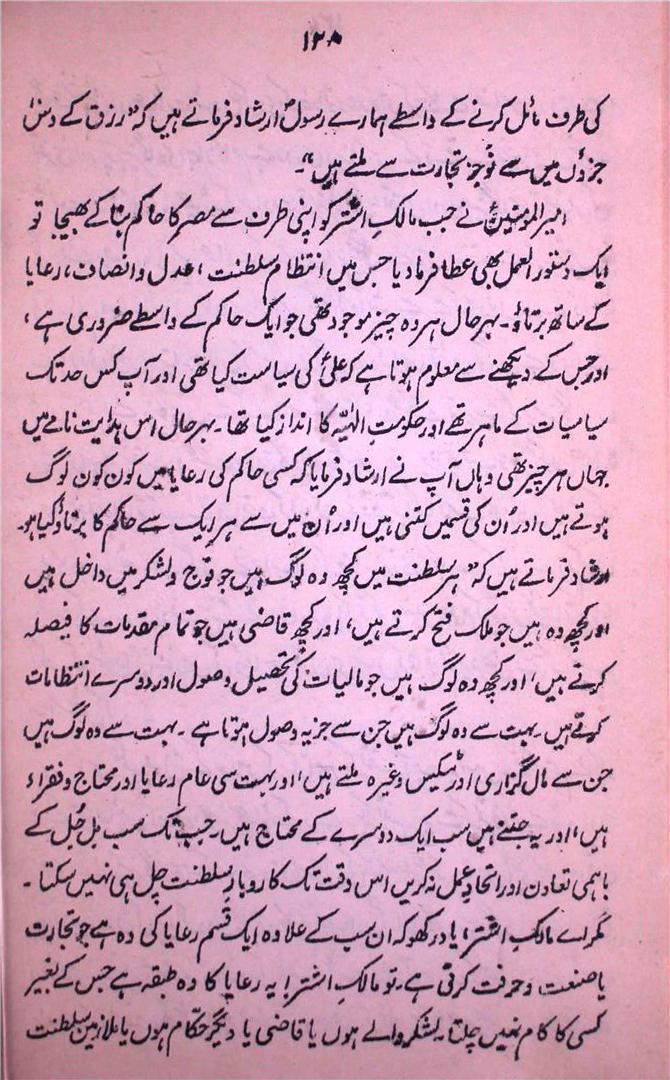 ۱۲۸
کی طرف مائل کرنے کے واسطے ہمارے رسولؐ ارشاد فرماتے ہیں کہ "رزق کے دس
جزوں میں سے نو جز تجارت سے ملتے ہیں"۔
امیرالمومنینؑ نے جب مالک اشتر کو اپنی طرف سے مصر کا حاکم بنا کے بھیجا تو
ایک دستورالعمل بھی عطا فرما دیا جس میں انتظام سلطنت، عدل و انصاف، رعایا
کے ساتھ برتاؤ۔ بہرحال ہر وہ چیز موجود تھی جو ایک حاکم کے واسطے ضروری ہے،
اور جس کے دیکھنے سے معلوم ہوتا ہے کہ علیؑ کی سیاست کیا تھی اور آپ کس حد تک
سیاسیات کے ماہر تھے اور حکومتِ الٰہیّہ کا انداز کیا تھا۔ بہرحال اس ہدایت نامے میں
جہاں ہر چیز تھی وہاں آپ نے ارشاد فرمایا کہ کسی حاکم کی رعایا میں کون کون لوگ
ہوتے ہیں اور اُن کی قسمیں کتنی ہیں اور اُن میں سے ہر ایک سے حاکم کا برتاؤ کیا ہو۔
ارشاد فرماتے ہیں کہ "ہر سلطنت میں کچھ وہ لوگ ہیں جو فوج و لشکر میں داخل ہیں
اور کچھ وہ ہیں جو ملک فتح کرتے ہیں، اور کچھ قاضی ہیں جو تمام مقدمات کا فیصلہ
کرتے ہیں، اور کچھ وہ لوگ ہیں جو مالیات کی تحصیل وصول اور دوسرے انتظامات
کرتے ہیں۔ بہت سے وہ لوگ ہیں جن سے جزیہ وصول ہوتا ہے۔ بہت سے وہ لوگ ہیں
جن سے مال گزاری اور ٹیکس وغیرہ ملتے ہیں، اور بہت سی عام رعایا اور محتاج و فقراء
ہیں، اور یہ جتنے ہیں سب ایک دوسرے کے محتاج ہیں۔ جب تک سب مِل جُل کے
باہمی تعاون اور اتحادِ عمل نہ کریں اس وقت تک کاروبارِ سلطنت چل ہی نہیں سکتا۔
مگر اے مالکِ اشتر، یاد رکھو کہ ان سب کے علاوہ ایک قسم رعایا کی وہ ہے جو تجارت
یا صنعت و حرفت کرتی ہے۔ تو مالکِ اشتر! یہ رعایا کا وہ طبقہ ہے جس کے بغیر
کسی کا کام نہیں چلتا۔ لشکر والے ہوں یا قاضی یا دیگر حکّام ہوں یا ملازمین سلطنت